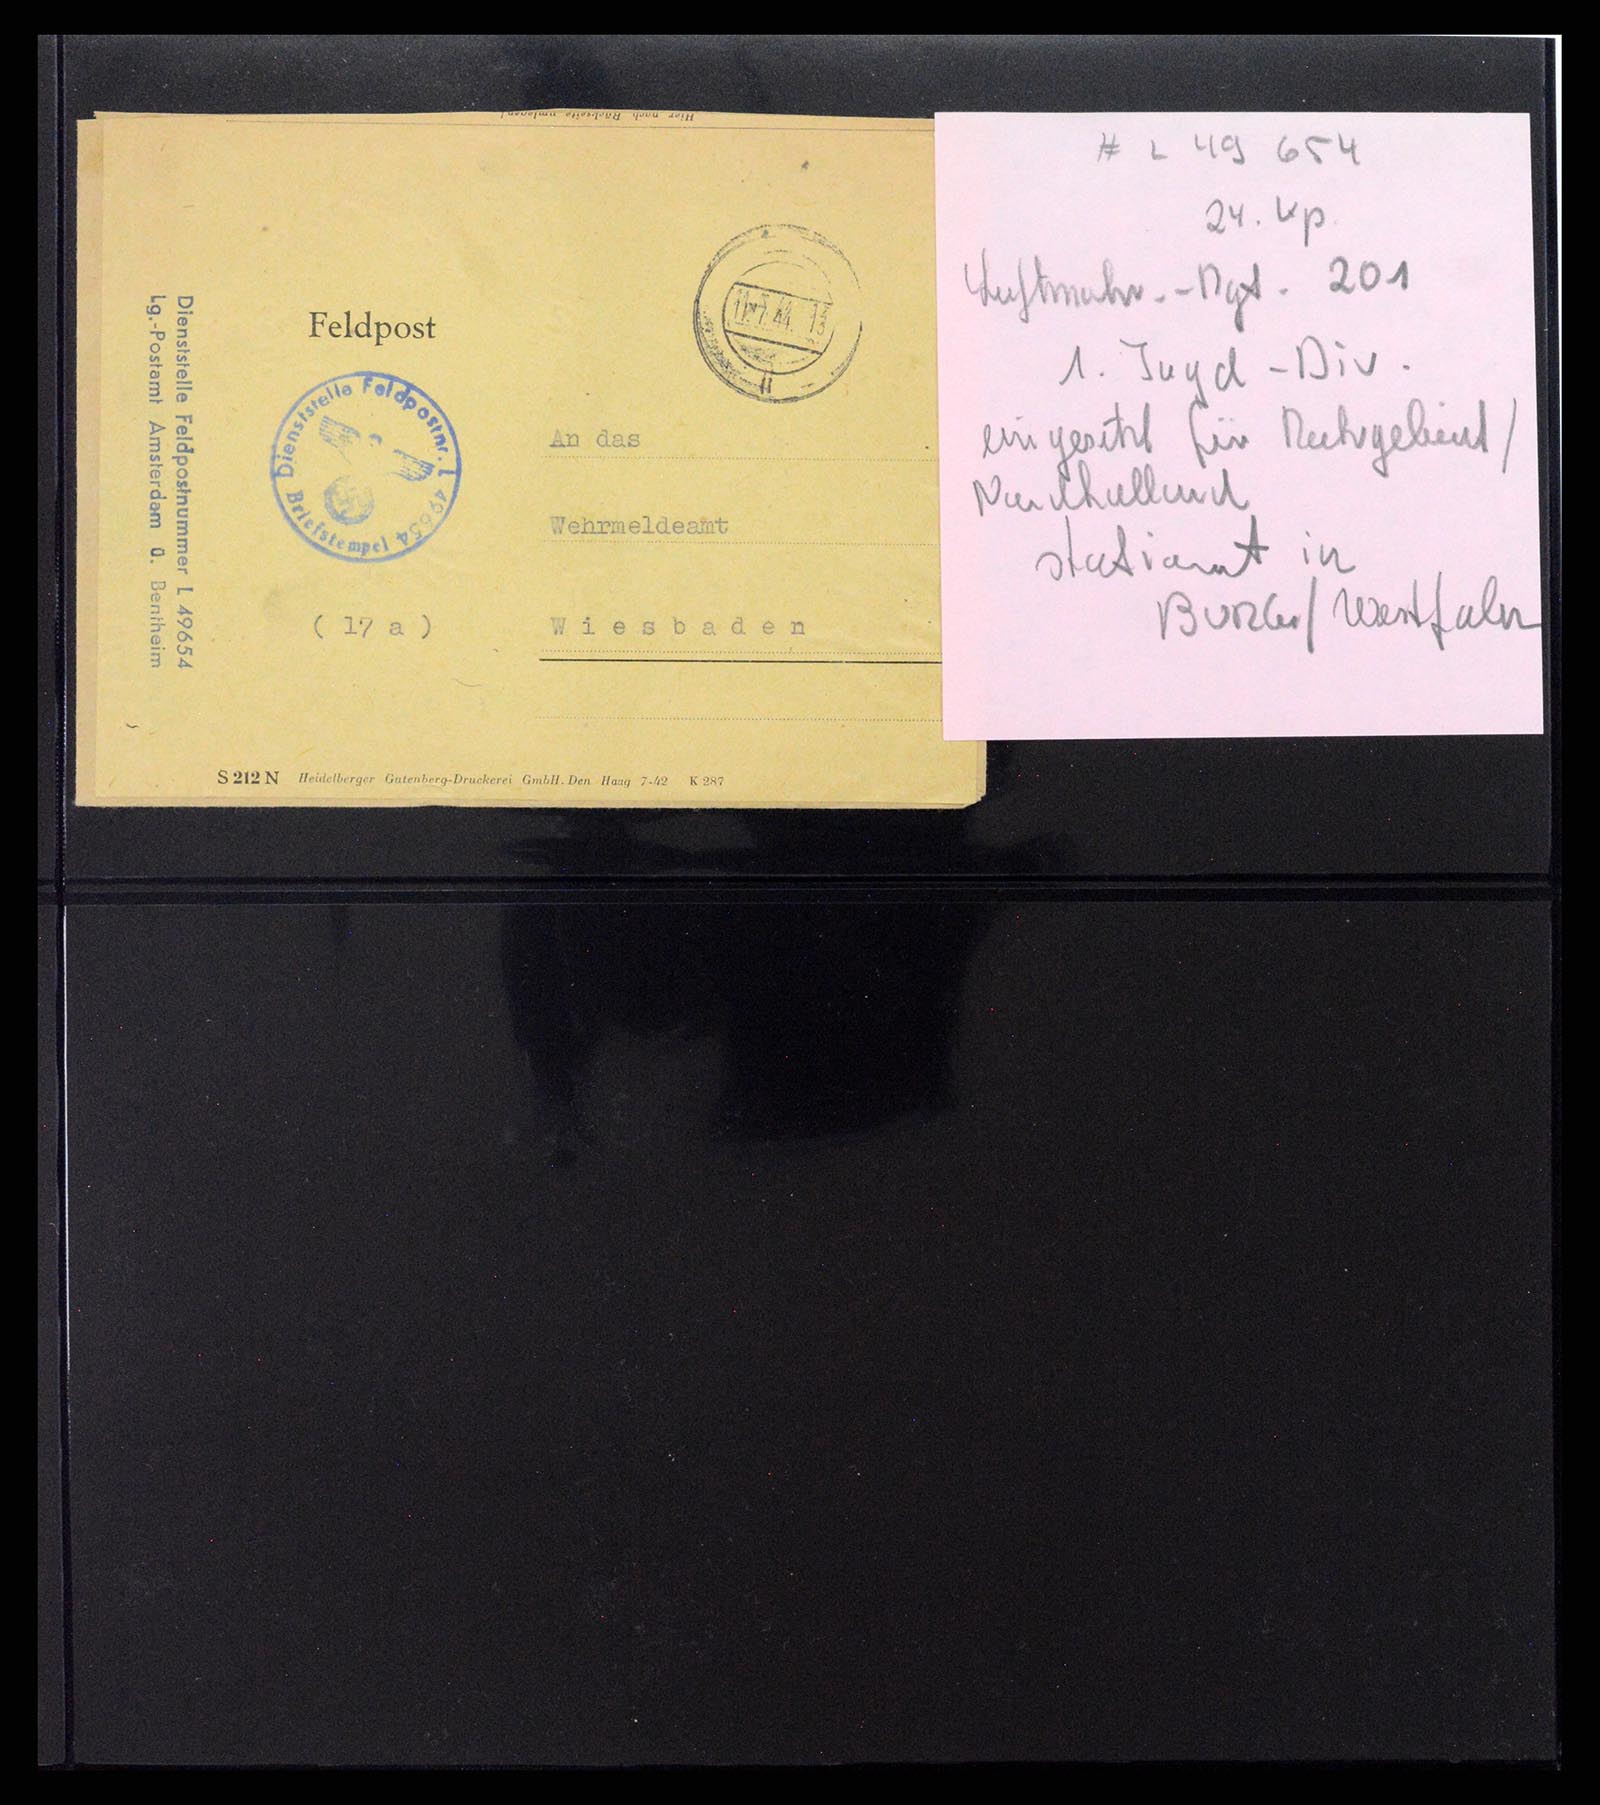 Hier nach Rückseite umlegen!
Dienststelle Feldpostnummer L 49654
Lg.-Postamt Amsterdam ü. Bentheim
Feldpost
Dienststelle Feldpostnr. L 49654
Briefstempel
11.7.44. 13
An das
Wehrmeldeamt
( 17 a )
Wiesbaden
S 212 N Heidelberger Gutenberg-Druckerei GmbH. Den Haag 7-42 K 287
# L 49 654
24. Kp.
Luftnachr.-Rgt. 201
1. Jagd-Div.
eingesetzt für Ruhrgebiet/
Nordholland
stationiert in
/Westfalen